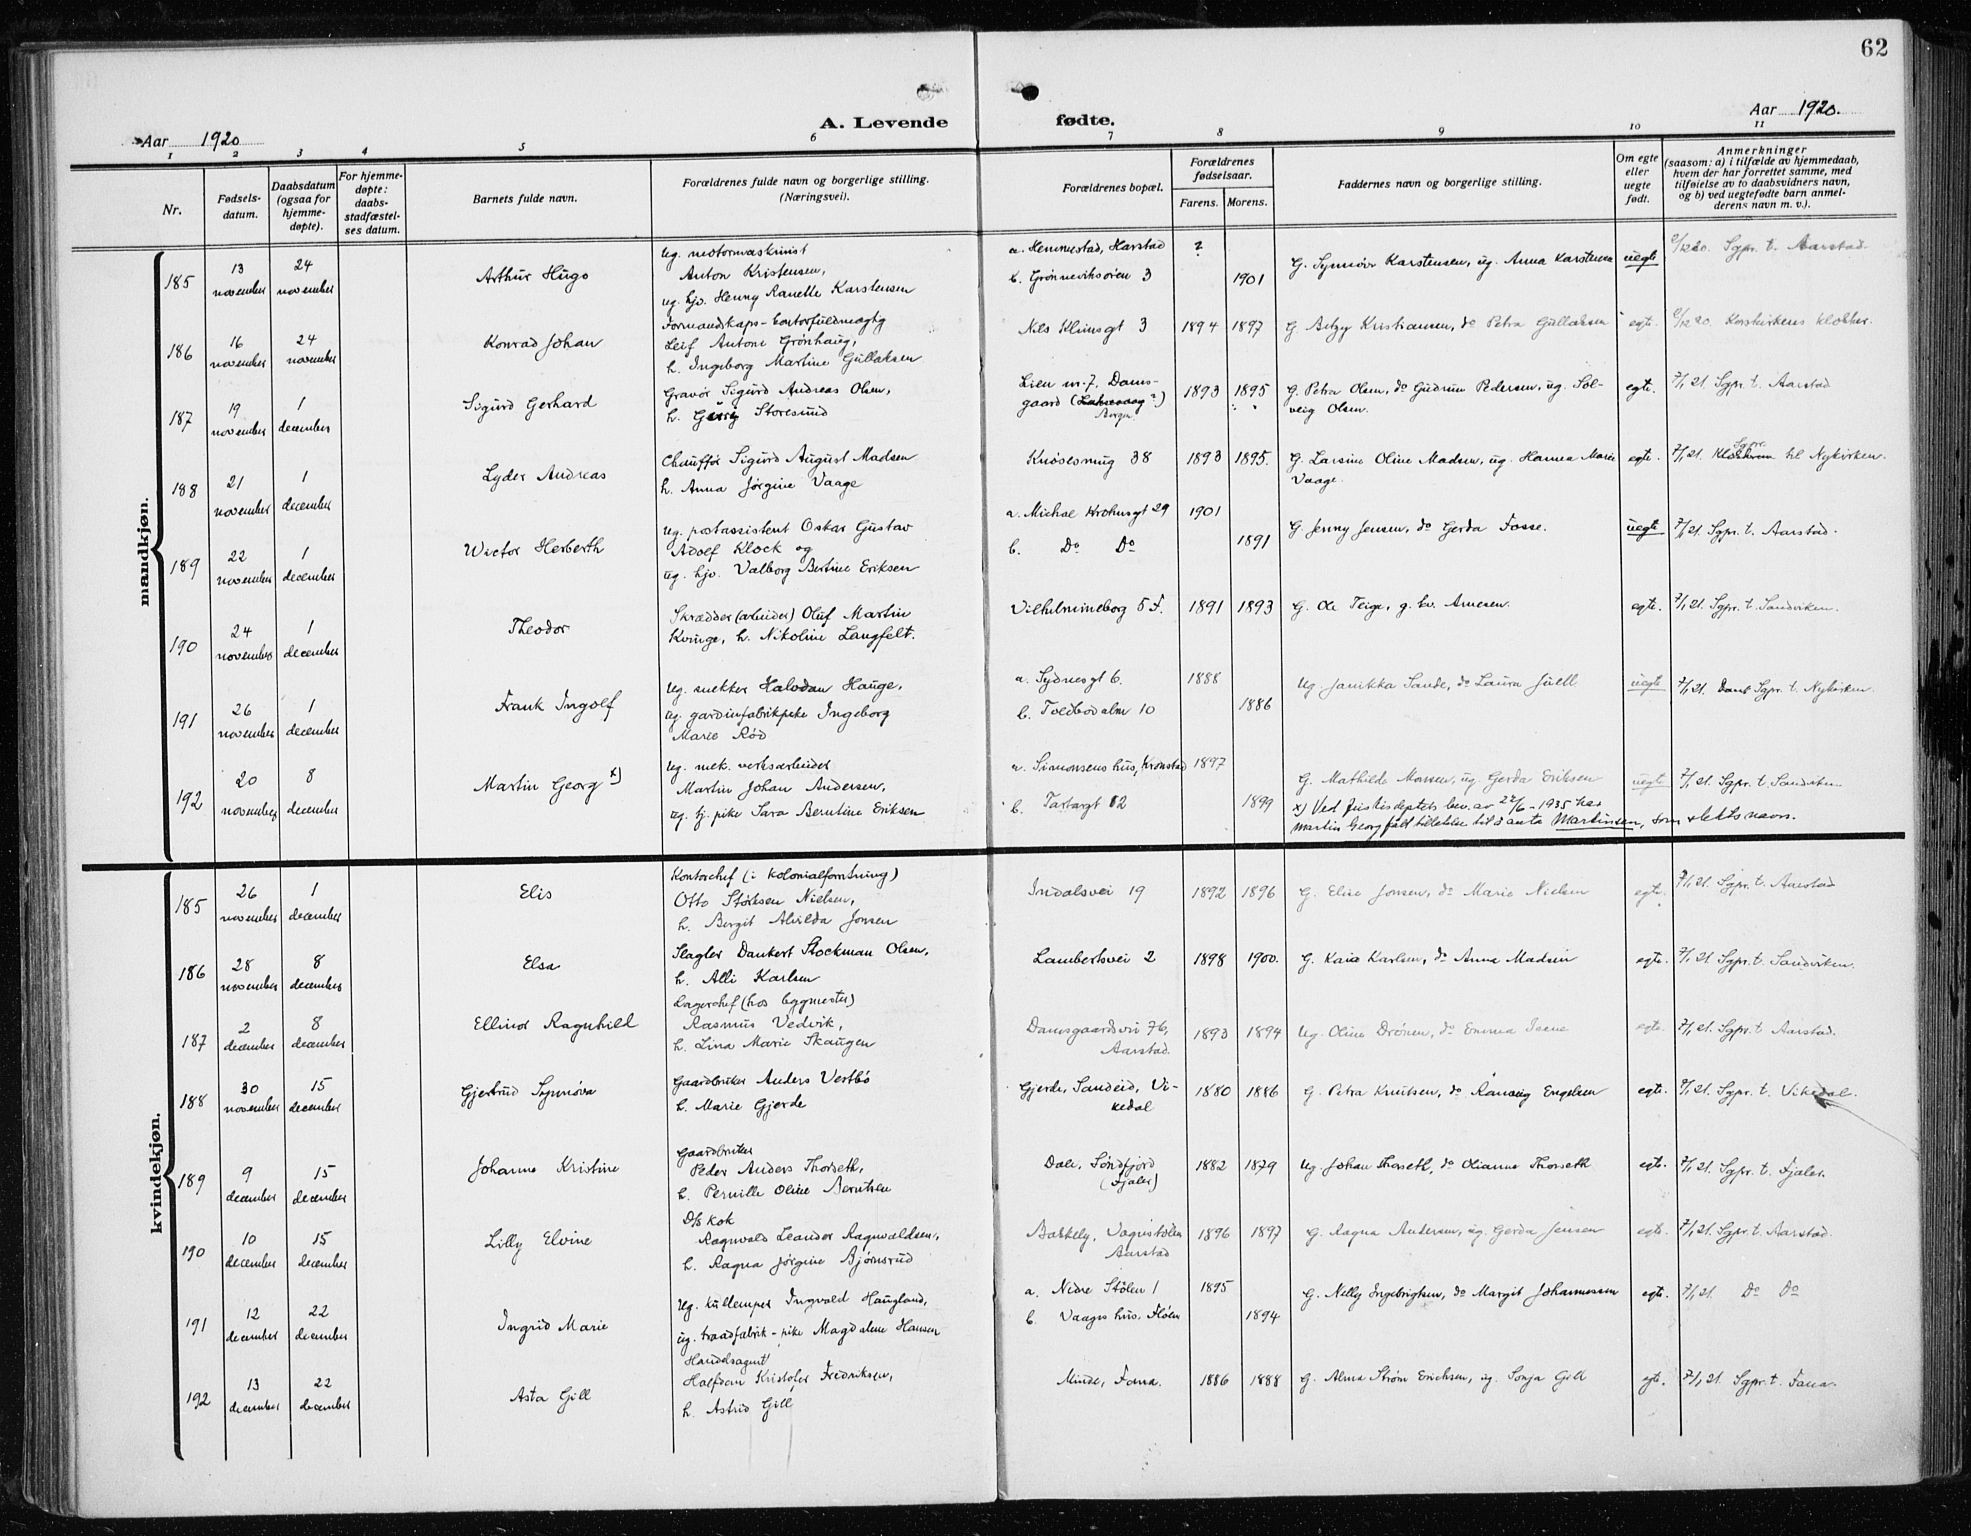 62
Aar 1920
A. Levende
fødte.
Aar 1920.
1 2 3 4 5 6 7 8 9 10 11
Nr.
Fødsels-
datum.
Daabsdatum
(ogsaa for
hjemme-
døpte).
For hjemme-
døpte:
daabs-
stadfæstel-
ses datum.
Barnets fulde navn.
Forældrenes fulde navn og borgerlige stilling.
(Næringsvei).
Forældrenes bopæl.
Forældrenes
fødselsaar.
Farens. Morens.
Faddernes navn og borgerlige stilling.
Om egte
eller
uegte
født.
Anmerkninger
(saasom: a) i tilfælde av hjemmedaab,
hvem der har forrettet samme, med
tilføielse av to daabsvidners navn,
og b) ved uegtefødte barn anmel-
derens navn m. v.).
mandkjøn.
185
13
november
24
november
Arthur Hugo
ug. motormaskinist
Anton Kristensen,
ug. hjv. Henny Ranette Karstensen
a. Hemmestad, Harstad ?
b. Grønneviksøren 3 1901
G. Synnøve Karstensen, ug. Anna Karstensen
uegte
Sgpr. t. Aarstad.
186
16
november
24
november
Konrad Johan
Formandskaps-kontorfuldmægtig
Leif Antoni Grønhaug,
h. Ingeborg Martine Gullaksen
Nils Klimsgt 3 1894 1897
G. Betzy Kristiansen, do Petra Gullaksen
egte.
Korskirkens klokker.
187
19
november
1
december
Sigurd Gerhard
Gravør Sigurd Andreas Olsen,
h. Storesund
Lien nr. 7, Dams-
gaard (Laksevaag ?)
Bergen
1893 1895
G. Petra Olsen, do Gudrun Pedersen, ug. Sol-
veig Olsen.
egte.
7/1 21. Sgpr. t. Aarstad
188
21
november
1
december
Lyder Andreas
Chauffør Sigurd August Madsen
h. Anna Jørgine Vaage
Knøsesmug 38 1893 1895.
G. Larsine Oline Madsen, ug. Hanna Marie
Vaage.
egte.
7/1 21. til Nykirken.
189
22
november
1
december
Victor Herberth
ug. postassistent Oskar Gustav
Adolf Klock og
ug. hjv. Valborg Bertine Eriksen
a. Michael Krohnsgt 29 1901
b. Do Do 1891
G. Jenny Jensen, do Gerda Fosse.
uegte
7/1 21. Sgpr. t. Aarstad.
190
24
november
1
december
Theodor
Skrædder (arbeider) Oluf Martin
Kvinge, h. Nikoline Langfelt.
Vilhelmineborg 5 F. 1891 1893
G. Ole Teige, g. hv. Arnesen.
egte.
7/1 21. Sgpr. t. Sandviken.
191
26
november
1
december
Frank Ingolf
ug. snekker Halvdan Hauge,
ug. gardinfabrikpike Ingeborg
Marie Rød
a. Sydnesgt 6. 1888
b. Toldbodalm 10 1886
ug. Janikka Sande, do Laura Juell
uegte
7/1 21. Sgpr. t. Nykirken.
192
20
november
8
december
Martin Georg x)
ug. mek. verksarbeider
Martin Johan Andersen,
ug. tj. pike Sara Berntine Eriksen
a. Simonsens hus, Kronstad 1897
b. Tartargt 12 1899
G. Mathilde Monsen, ug. Gerda Eriksen
uegte
7/1 21. Sgpr. t. Sandviken
x) Ved Justisdeptets bev. av 22/6 - 1935 har
Martin Georg fått tillatelse til å anta Martinsen, som slektsnavn.
kvindekjøn.
185
26
november
1
december
Elis
Kontorchef (i kolonialforretning)
Otto Stølesen Nielsen,
h. Bergit Alvilda Jonsen
Inndalsvei 19 1892 1896
G. Elise Jonsen, do Marie Nielsen
egte.
7/1 21. Sgpr. t. Aarstad
186
28
november
8
december
Elsa
Slagter Dankert Stockman Olsen,
h. Alli Karlsen
Lambertsvei 2 1898 1900.
G. Kaia Karlsen, do Anna Madsen
egte.
7/1 21. Sgpr. t. Sandviken.
187
2
december
8
december
Ellinor Ragnhild
Lagerchef (hos bygmester)
Rasmus Vedvik,
h. Lina Marie Skaugen
Damsgaardsvei 76,
Aarstad.
1893 1894
ug. Oline Drønen, do Emma Isene
egte.
7/1 21. Sgpr. t. Aarstad.
188
30
november
15
december
Gjertrud Synnøva
Gaardbruker Anders Vestbø
h. Marie Gjerde
Gjerde, Sandeid, Vi-
kedal
1880 1886
G. Petra Knutsen, do Rannveig Engelsen
egte.
7/1 21. Sgpr. t. Vikedal.
189
9
december
15
december
Johanne Kristine
Gaardbruker
Peder Anders Thorseth,
h. Pernille Oline Berntsen
Dale, Søndfjord
(Fjaler)
1882 1879
ug Johan Thorseth, do Olianne Thorseth
egte.
7/1 21. Sgpr. t. Fjaler.
190
10
december
15
december
Lilly Elvine
D/s kok
Ragnvald Leander Ragnvaldsen,
h. Ragna Jørgine Bjørnsrud
Bakkely, Vognstølen
Aarstad
1896 1897
G. Ragna Andersen, ug. Gerda Jensen
egte.
7/1 21. Sgpr. t. Aarstad.
191
12
december
22
december
Ingrid Marie
ug. kullemper Ingvald Haugland,
ug. traadfabrik-pike Magdalene Hansen
a. Nidre Stølen 1 1895
b. Vaages hus. Fløen 1894
G. Nelly Ingebrigtsen, do Margit Johannessen
egte.
7/1 21. Do Do
192
13
december
22
december
Asta Gill
Handelsagent
Halfdan Kristofer Fredriksen,
h. Astrid Gill
Minde, Fana. 1886 1888
G. Alma Strøm Erichsen, ug. Sonja Gill
egte.
7/1 21. Sgpr. t. Fana.